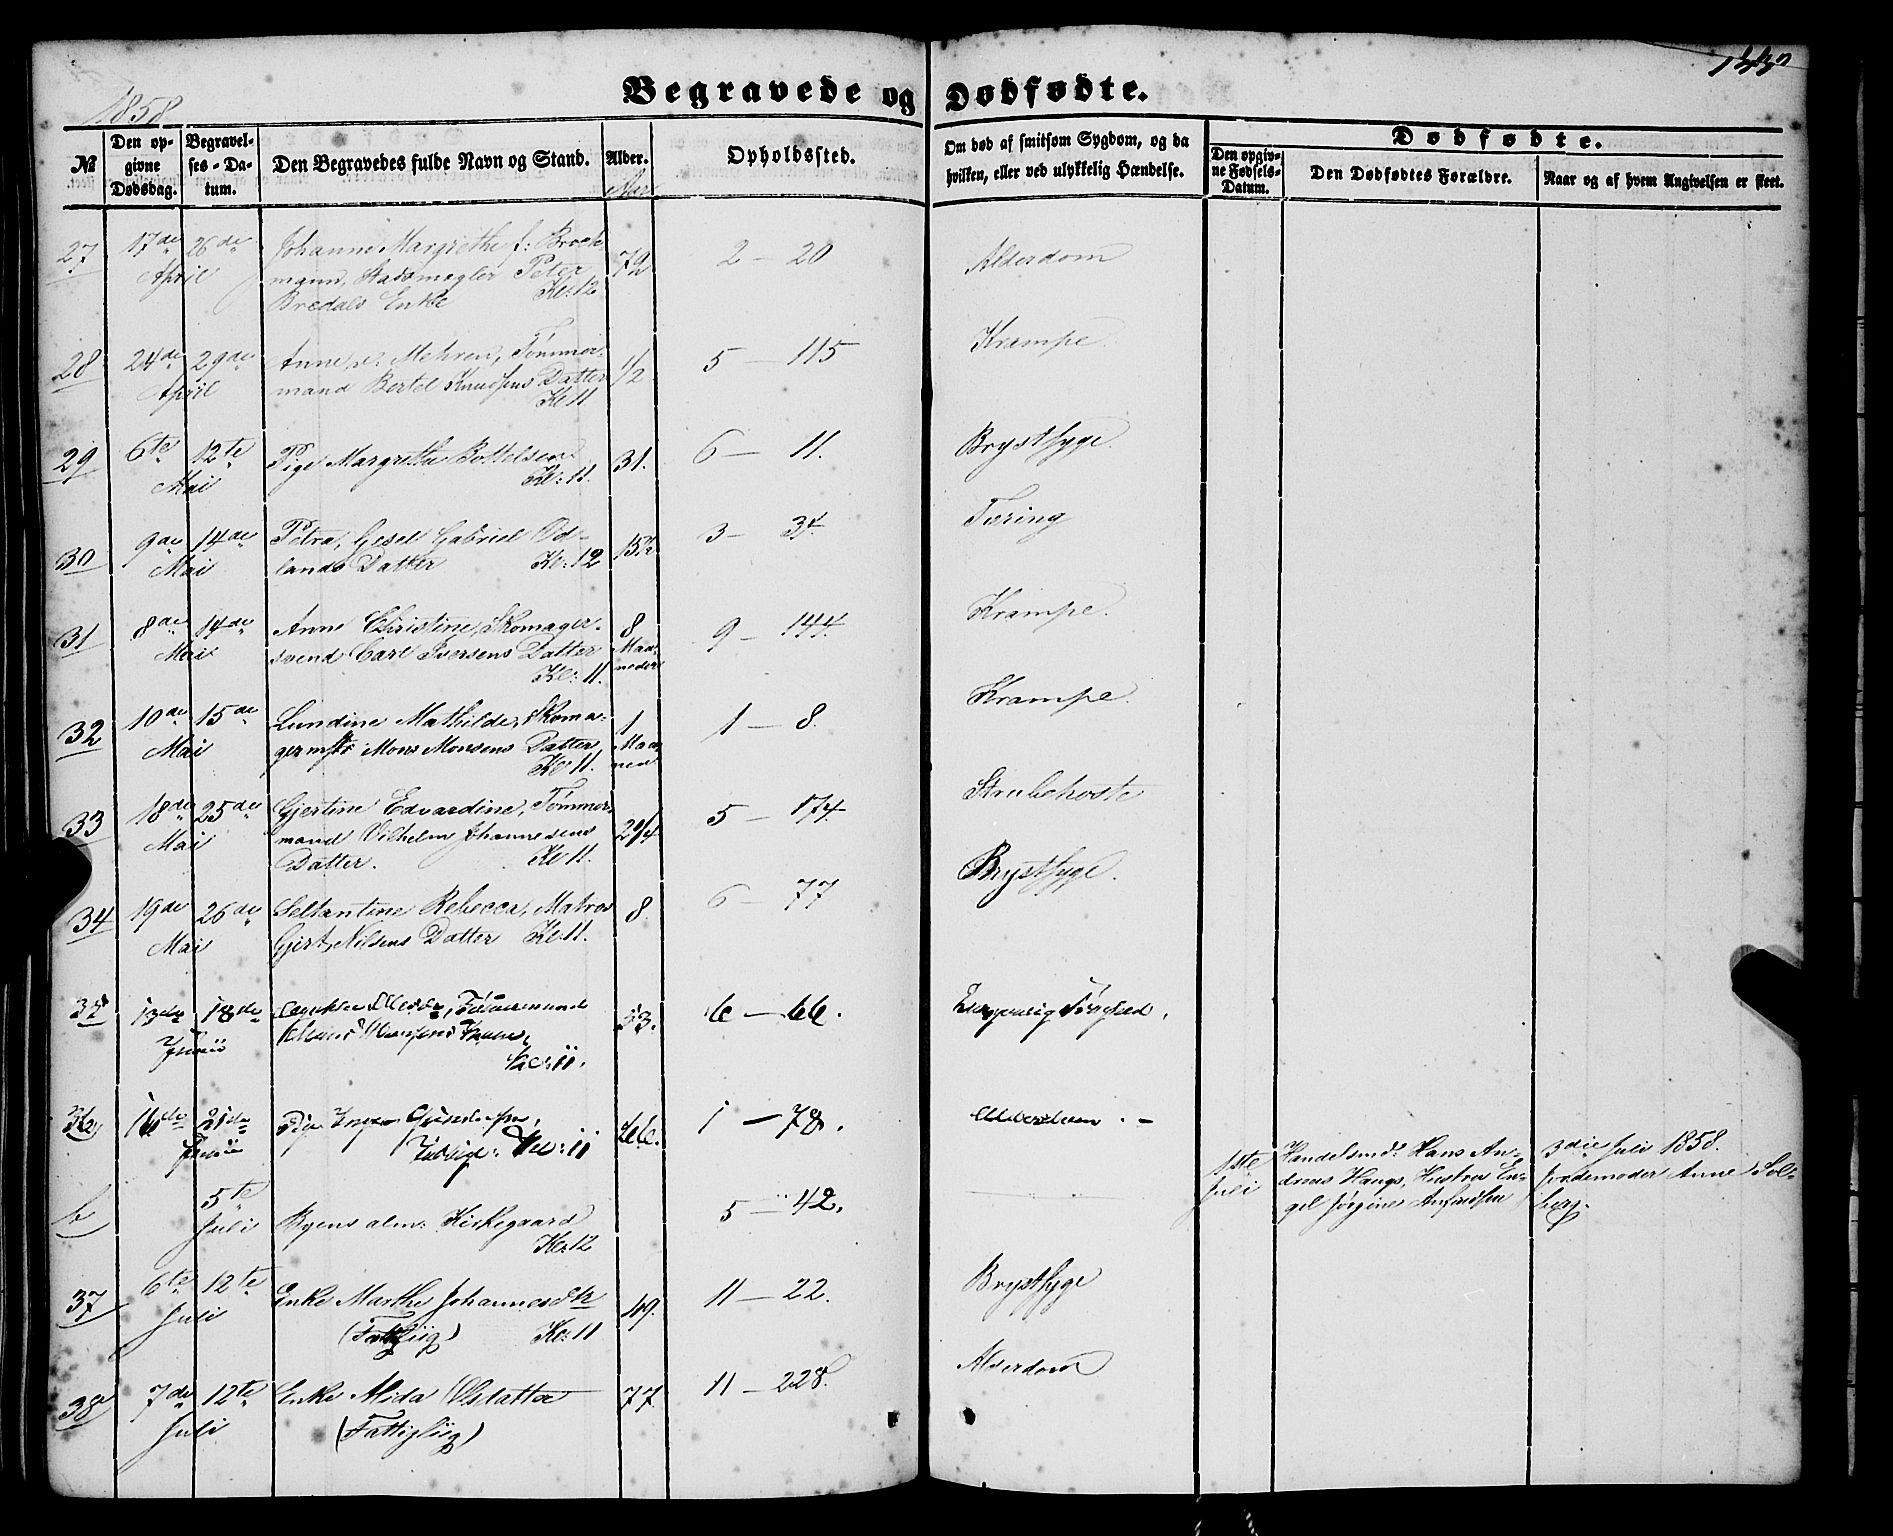 1858
Begravede og Dødfødte.
№
Den op-
givne
Dødsdag.
Begravel-
ses-Da-
tum.
Den Begravedes fulde Navn og Stand.
Alder.
Aar
Opholdssted.
Om død af smitsom Sygdom, og da
hvilken, eller ved ulykkelig Hændelse.
Dødfødte.
Den opgiv-
ne Fødsels-
Datum.
Den Dødfødtes Forældre.
Naar og af hvem Angivelsen er skeet.
27 17de 26de Johanne Margrethe f: Brock
April mann, Stadsmegler Peter 79 2 — 20 Alderdom
Bredals Enke Kl: 12
28 24de 29de Anne v. Mehren, Tømmer-
April mand Bertel Knudsens Datter 1/2 5 — 115 Krampe.
Kl 11
29 6te 12te Pige Margrethe Bottelsen 31. 6 — 11. Brystsyge.
Mai Kl: 11.
30 9de 14de Petra, Gesel Gabriel Od-
Mai lands Datter Kl: 12 3 — 34. Tæring
31 8de 14de Anne Christine, Skomager- 8
Mai svend Carl Iversens Datter Maa- 9 — 144. Krampe.
Kl: 11. neder
32 10de 15de Lundine Mathilde, Skoma- 1
Mai germstr Mons Monsens Datter, Maa- 1 — 8. Krampe.
Kl 11. ned
33 18de 25de Gjertine Edvardine, Tømmer-
Mai mand Vilhelm Johannesens 2 1/4 5 — 174 Strubehoste
Datter. Kl 11.
34 19de 26de Seltantine Rebecca, Matros 8. 6 — 77 Brystsyge.
Mai Gjert Nilsens Datter Kl: 11.
35 13de 18de Tømmermand
Junii 53. 6 — 66.
Kl: 11.
36 16de 21de Pige
Junii Kl: 11 66. 1 — 78. Alderdom. -
b 5te
Juli Byens alm: Kirkegaard 5 — 42.
Kl: 12
1ste Handelsmd: Hans An-
Juli dreas Haugs, Hustru En-
gel Jørgine
3die Juli 1858.
Jordemoder Anne Sol-
berg.
37 6te 12te Enke Marthe Johannesdtr 49. 11 — 22. Brystsyge
Juli (Fattigliig) Kl: 11
38 7de 12te Enke Alida Olsdatter 77 11 — 228. Alderdom
Juli (Fattigliig)